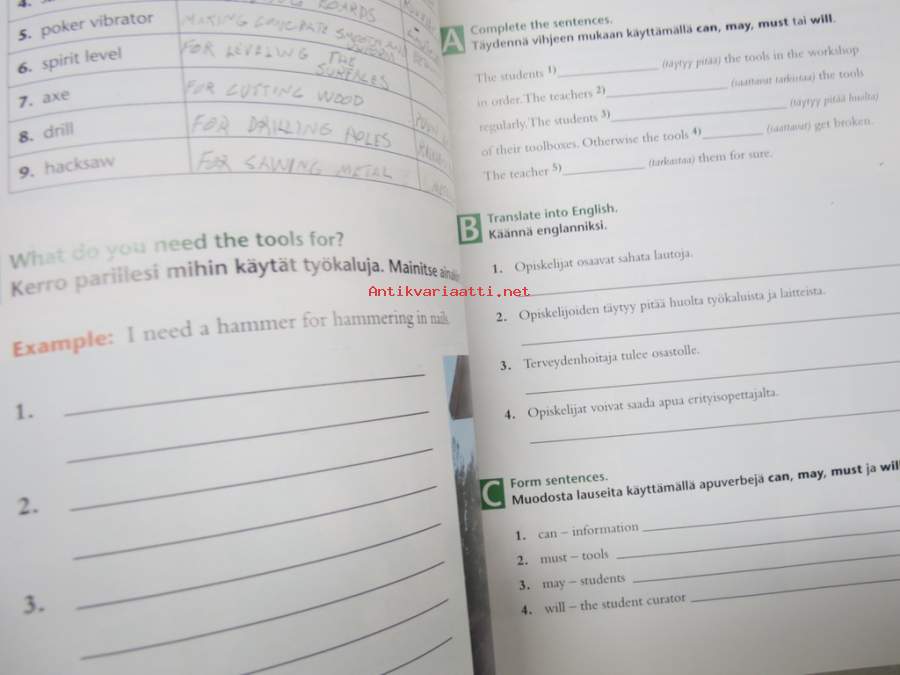 4.
BOARDS
5. poker vibrator
MAKING CONCRATE SMOOTH AND
6. spirit level
FOR LEVELING THE
SURFACES
7. axe
FOR CUTTING WOOD
8. drill
FOR DRILLING HOLES
9. hacksaw
FOR SAWING METAL
What do you need the tools for?
Kerro parillesi mihin käytät työkaluja. Mainitse
Example: I need a hammer for hammering in nails.
1.
2.
3.
A Complete the sentences.
Täydennä vihjeen mukaan käyttämällä can, may, must tai will.
The students 1) (täytyy pitää) the tools in the workshop
in order. The teachers 2) (saattavat tarkistaa) the tools
regularly. The students 3) (täytyy pitää huolta)
of their toolboxes. Otherwise the tools 4) (saattavat) get broken.
The teacher 5) (tarkastaa) them for sure.
B Translate into English.
Käännä englanniksi.
1. Opiskelijat osaavat sahata lautoja.
Antikvariaatti.net
2. Opiskelijoiden täytyy pitää huolta työkaluista ja laitteista.
3. Terveydenhoitaja tulee osastolle.
4. Opiskelijat voivat saada apua erityisopettajalta.
C Form sentences.
Muodosta lauseita käyttämällä apuverbejä can, may, must ja will
1. can – information
2. must – tools
3. may – students
4. will – the student curator